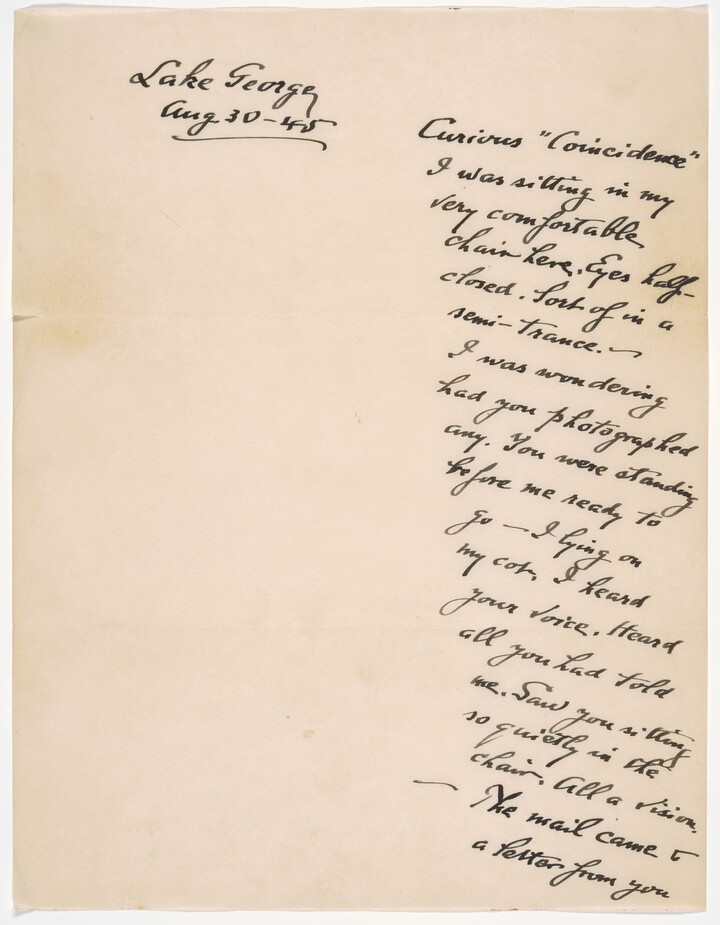 Lake George
Aug 30-45
Curious "Coincidence"
I was sitting in my
very comfortable
chair here. Eyes half-
closed. Sort of in a
semi-trance. —
I was wondering
had you photographed
any. You were standing
before me ready to
go — I lying on
my cot. I heard
your voice. Heard
all you had told
me. Saw you sitting
so quietly in the
chair. All a vision.
— The mail came &
a letter from you